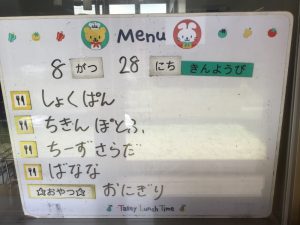 Menu
8 がつ 28 にち きんようび
しょくぱん
ちきんぽとふ
ちーずさらだ
ばなな
☆おやつ☆ おにぎり
Tasty Lunch Time